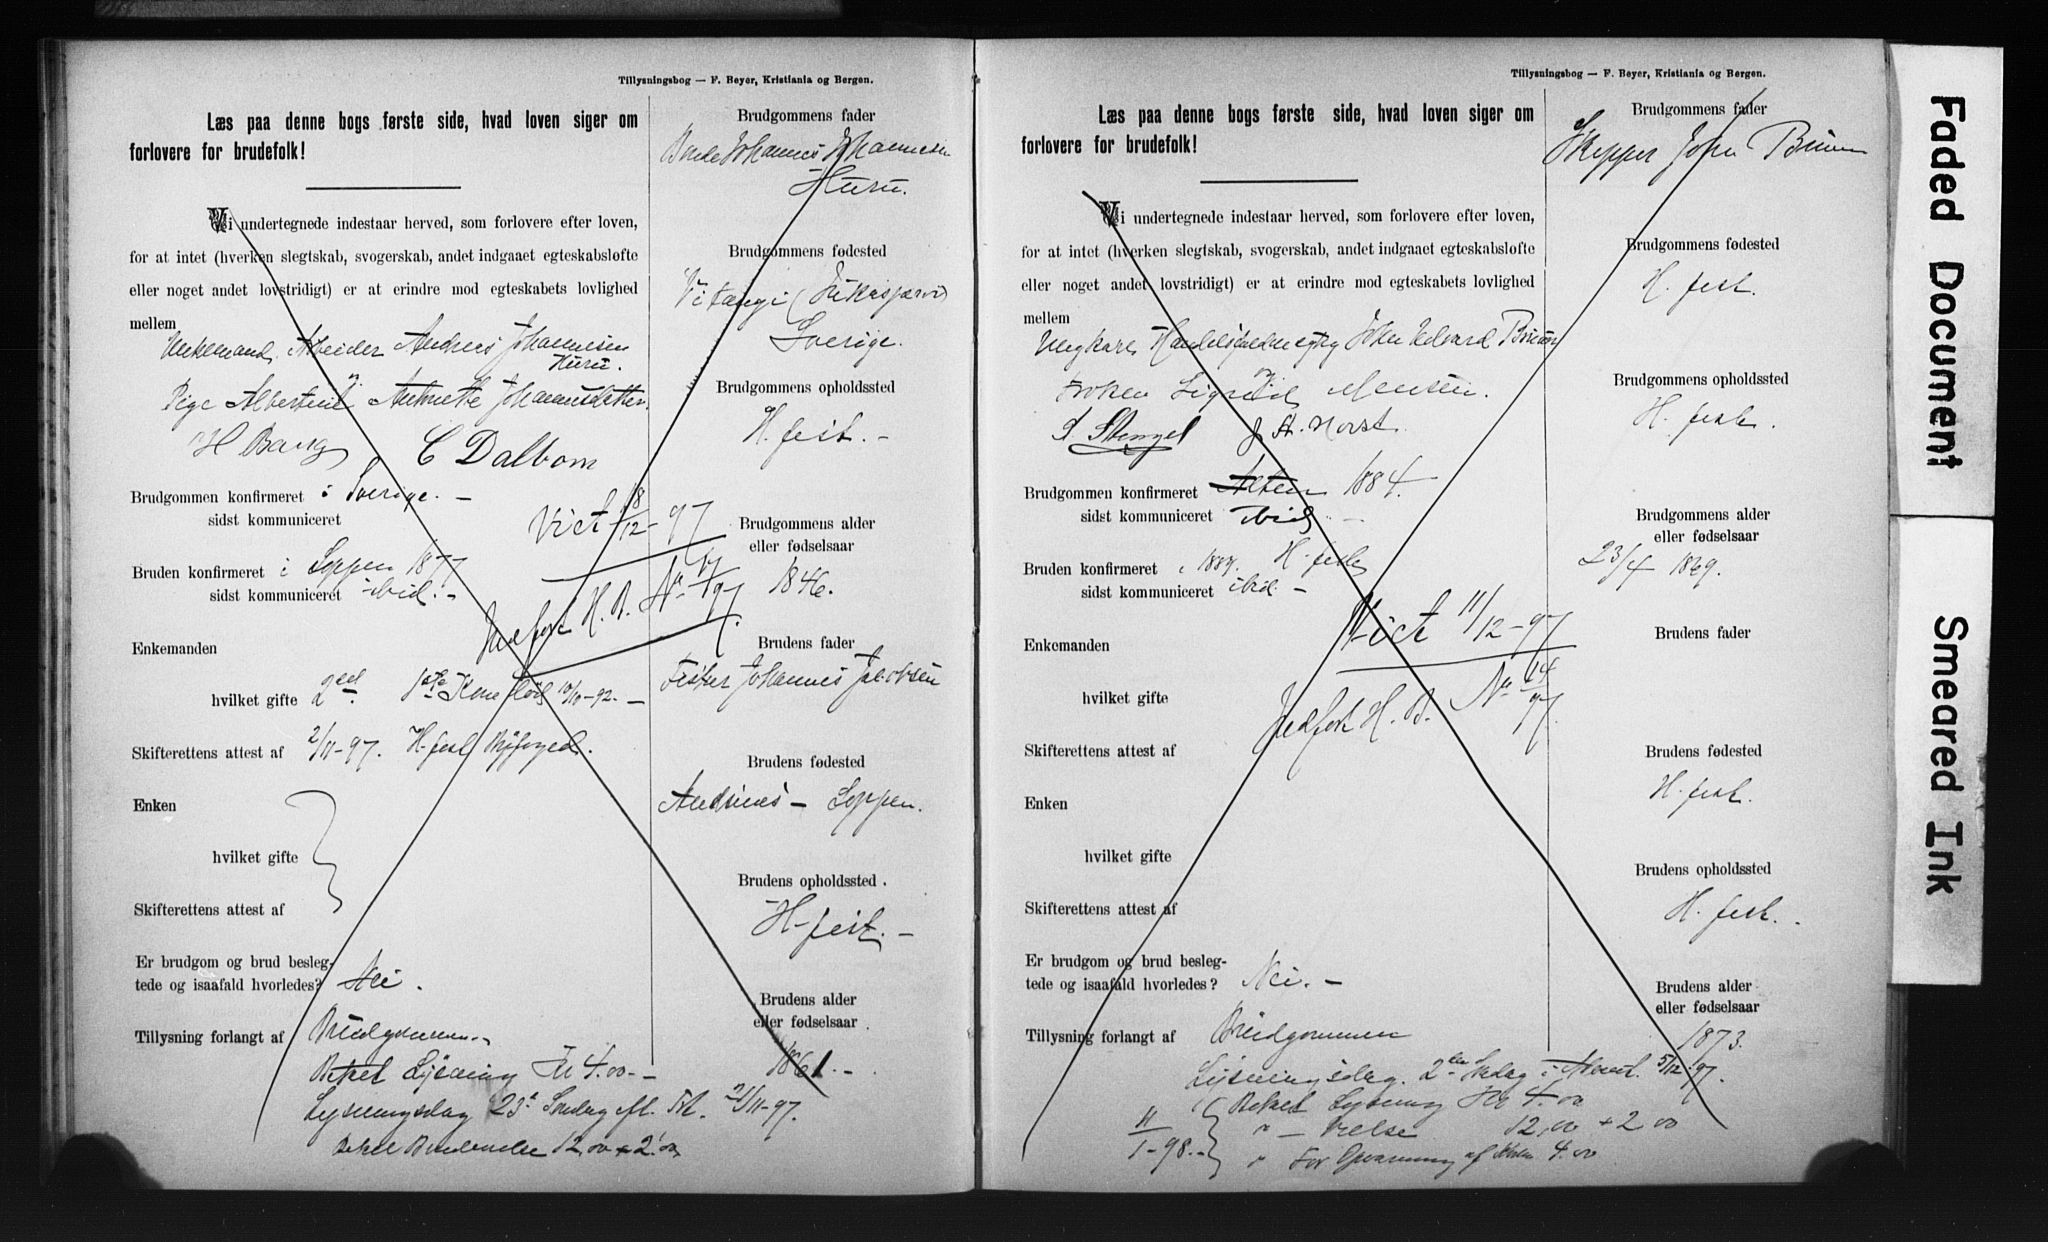 Tillysningsbog — F. Beyer, Kristiania og Bergen.
Læs paa denne bogs første side, hvad loven siger om
forlovere for brudefolk!
Vi undertegnede indestaar herved, som forlovere efter loven,
for at intet (hverken slegtskab, svogerskab, andet indgaaet egteskabsløfte
eller noget andet lovstridigt) er at erindre mod egteskabets lovlighed
mellem
Enkemand, Arbeider Andreas Johannesen
Huru.
Pige Albertine Antonette Johannesdatter.
H Bang C Dalbom
Brudgommen konfirmeret i Sverige. —
sidst kommuniceret
Vict 18/12-97
Bruden konfirmeret i Loppen 1877
sidst kommuniceret ibid. —
Indført H. B. No 17/97.
Enkemanden
hvilket gifte 2det 1ste Kone død 10/10-92. —
Skifterettens attest af 2/11-97. H-fest Byfoged.
Enken
hvilket gifte
Skifterettens attest af
Er brudgom og brud besleg-
tede og isaafald hvorledes? Nei.
Tillysning forlangt af Brudgommen.
Betalt Lysning Kr 4.00 —
Lysningsdag 23de Søndag eft. Tr. 21/11-97.
Betalt 12,00 + 2.00
Brudgommens fader
Johannes Johannesen
Huru.
Brudgommens fødested
Vitangi (Jukasjærvi)
Sverige.
Brudgommens opholdssted
H. fest. —
Brudgommens alder
eller fødselsaar
1846.
Brudens fader
Fisker Johannes Jacobsen
Brudens fødested
Andsnes — Loppen.
Brudens opholdssted.
H-fest. —
Brudens alder
eller fødselsaar
1861. —
Tillysningsbog — F. Beyer, Kristiania og Bergen.
Læs paa denne bogs første side, hvad loven siger om
forlovere for brudefolk!
Vi undertegnede indestaar herved, som forlovere efter loven,
for at intet (hverken slegtskab, svogerskab, andet indgaaet egteskabsløfte
eller noget andet lovstridigt) er at erindre mod egteskabets lovlighed
mellem
Ungkarl John Edvard Bruun
Frøken Sigrid Monsen.
Stengel A. Horst.
Brudgommen konfirmeret Alten 1884.
sidst kommuniceret ibid —
Bruden konfirmeret i 1889. H. fest
sidst kommuniceret ibid. —
Vict 11/12-97
No 14/97.
Indført H. B.
Enkemanden
hvilket gifte
Skifterettens attest af
Enken
hvilket gifte
Skifterettens attest af
Er brudgom og brud besleg-
tede og isaafald hvorledes? Nei. —
Tillysning forlangt af Brudgommen
Lysningsdag. 2den Søndag i Advent. 5/12 97.
Betalt Lysning Kr 4.00
11/1-98. " — Vielse 12,00 + 2 00
" For Opvarmning af Kirken 4.00
Brudgommens fader
Skipper John Bruun
Brudgommens fødested
H. fest.
Brudgommens opholdssted
H. fest.
Brudgommens alder
eller fødselsaar
23/4 1869.
Brudens fader
Brudens fødested
H. fest.
Brudens opholdssted
H. fest. —
Brudens alder
eller fødselsaar
1873.
Faded Document
Smeared Ink